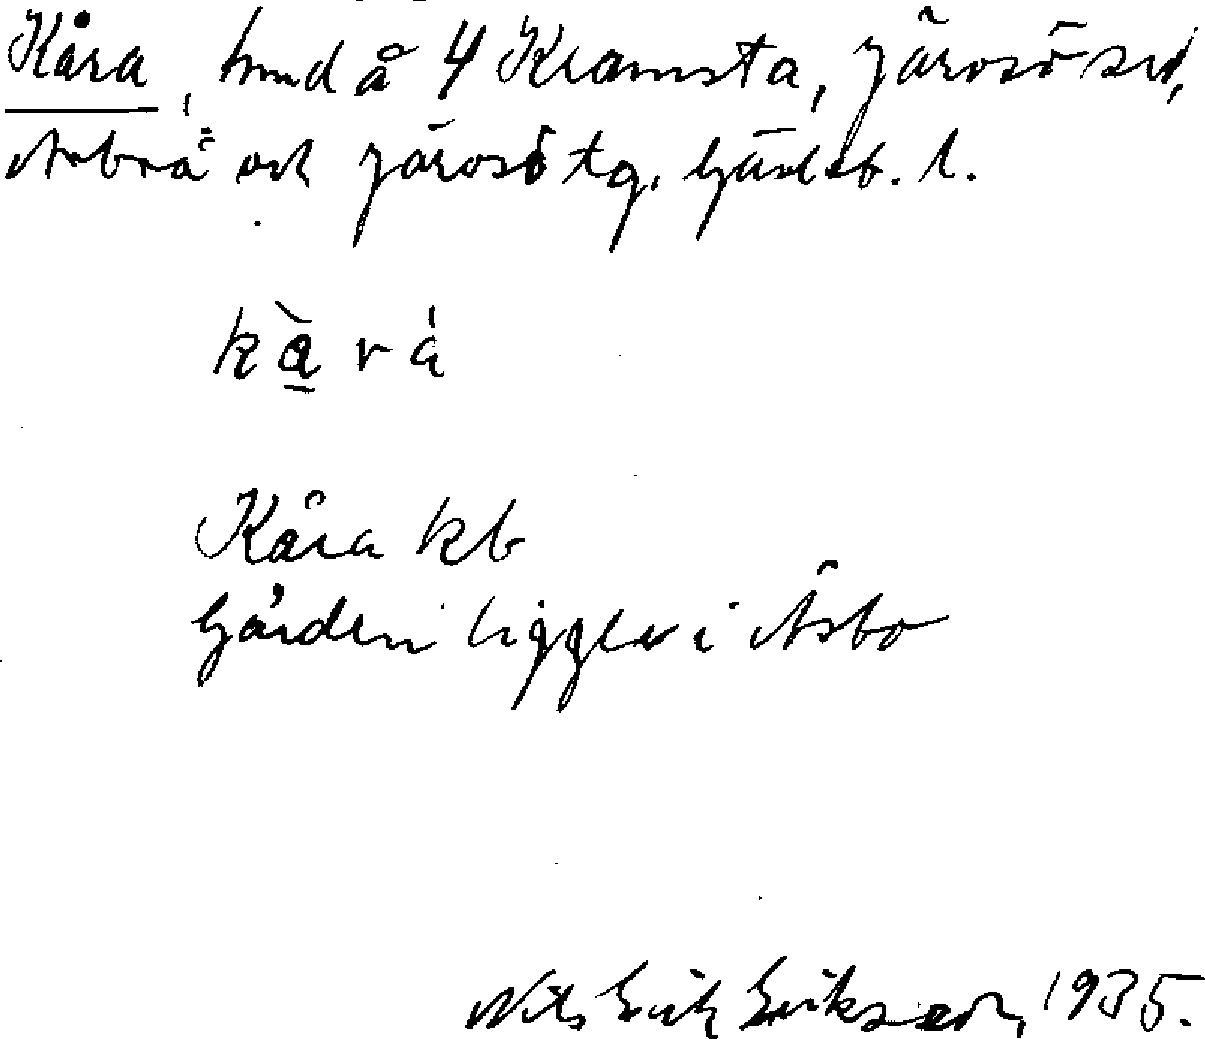 Kåra, hmd å 4 Kramsta, Järvsö sn,
Arbrå och Järvsö tg. Gävleb. l.
kàrá
Kåra kb
Gården ligger i Åsbo
Nils Erik Eriksson, 1935.